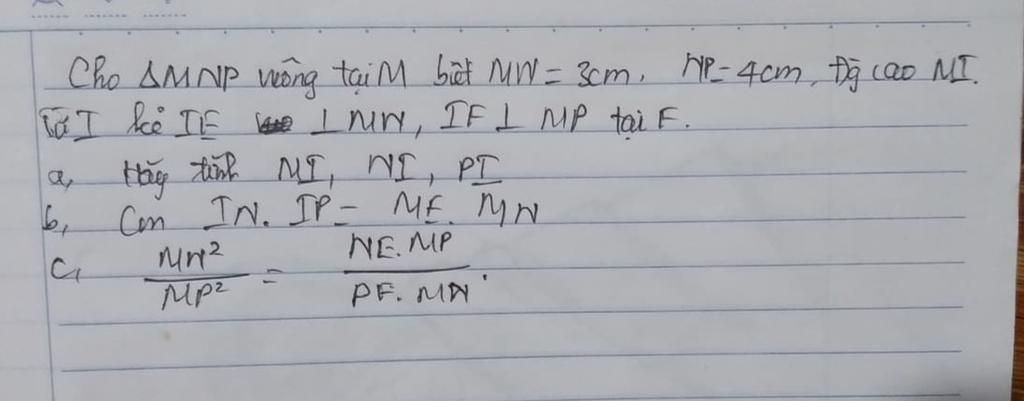 Cho ΔMNP vuông tại M biết MN = 3cm, NP = 4cm, Đg cao MI.
Từ I kẻ IE ⊥ MN, IF ⊥ MP tại F.
a, Hãy tính MI, NI, PI
b, Cm IN. IP = ME. MN
c, MN²/MP² = NE.MP/PF.MN.